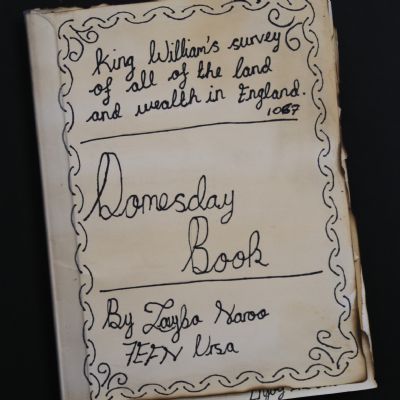 King William's survey
of all of the land
and wealth in England.
1087
Domesday
Book
By